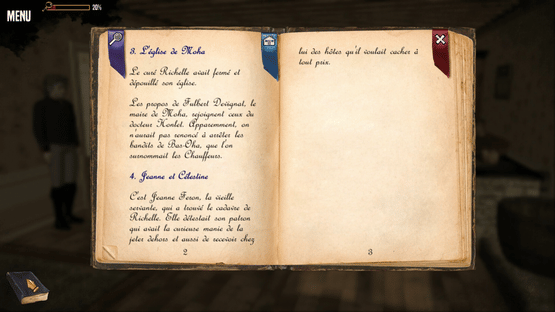 MENU
20%
3. L'église de Moka
Le curé Richelle avait fermé et
dépouillé son église.
Les propos de Fulbert Devignat, le
maire de Moka, rejoignent ceux du
docteur Hontel. Apparemment, on
n'aurait pas renoncé à arrêter les
bandits de Bas-Oha, que l'on
surnommait les Chauffeurs.
4. Jeanne et Célestine
C'est Jeanne Feron, la vieille
servante, qui a trouvé le cadavre de
Richelle. Elle détestait son patron
qui avait la curieuse manie de la
jeter dehors et aussi de recevoir chez
2
lui des hôtes qu'il voulait cacher à
tout prix.
3